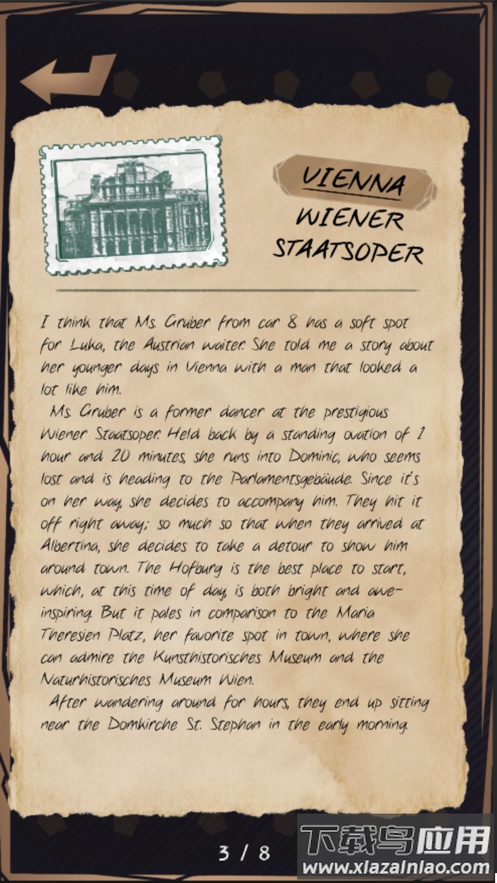 VIENNA
WIENER
STAATSOPER
I think that Ms. Gruber from car 8 has a soft spot
for Luka, the Austrian waiter. She told me a story about
her younger days in Vienna with a man that looked a
lot like him.
Ms. Gruber is a former dancer at the prestigious
Wiener Staatsoper. Held back by a standing ovation of 1
hour and 20 minutes, she runs into Dominic, who seems
lost and is heading to the Parlamentsgebäude. Since it's
on her way, she decides to accompany him. They hit it
off right away; so much so that when they arrived at
Albertina, she decides to take a detour to show him
around town. The Hofburg is the best place to start,
which, at this time of day, is both bright and awe-
inspiring. But it pales in comparison to the Maria
Theresien Platz, her favorite spot in town, where she
can admire the Kunsthistorisches Museum and the
Naturhistorisches Museum Wien.
After wandering around for hours, they end up sitting
near the Domkirche St. Stephan in the early morning.
3 / 8
下载鸟应用
www.xiazainiao.com